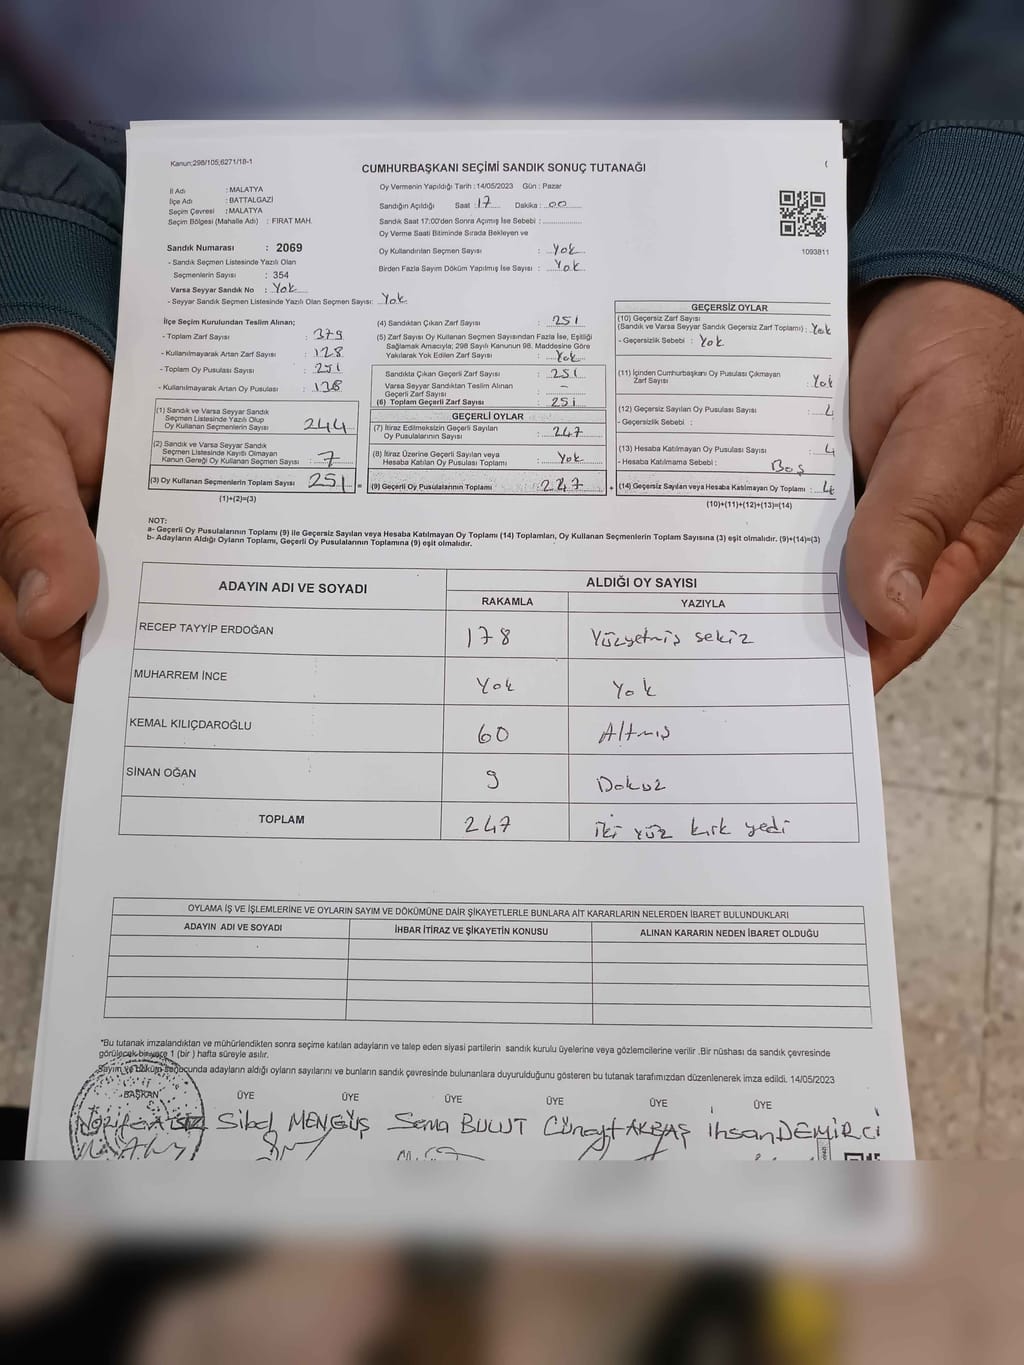 Kanun:298/105,6271/18-1
CUMHURBAŞKANI SEÇİMİ SANDIK SONUÇ TUTANAĞI
İl Adı : MALATYA
İlçe Adı : BATTALGAZİ
Seçim Çevresi : MALATYA
Seçim Bölgesi (Mahalle Adı) : FIRAT MAH.
Sandık Numarası : 2069
- Sandık Seçmen Listesinde Yazılı Olan
Seçmenlerin Sayısı : 354
Varsa Seyyar Sandık No : Yok
- Seyyar Sandık Seçmen Listesinde Yazılı Olan Seçmen Sayısı: Yok
Oy Vermenin Yapıldığı Tarih : 14/05/2023 Gün : Pazar
Sandığın Açıldığı Saat : 17 Dakika : 00
Sandık Saat 17:00'den Sonra Açımış İse Sebebi : ..............
Oy Verme Saati Bitiminde Sırada Bekleyen ve
Oy Kullandırılan Seçmen Sayısı : Yok
Birden Fazla Sayım Döküm Yapılmış İse Sayısı : Yok
1093811
İlçe Seçim Kurulundan Teslim Alınan;
- Toplam Zarf Sayısı : 379
- Kullanılmayarak Artan Zarf Sayısı : 128
- Toplam Oy Pusulası Sayısı : 251
- Kullanılmayarak Artan Oy Pusulası : 128
(1) Sandık ve Varsa Seyyar Sandık
Seçmen Listesinde Yazılı Olup
Oy Kullanan Seçmenlerin Sayısı 244
(2) Sandık ve Varsa Seyyar Sandık
Seçmen Listesinde Kayıtlı Olmayan
Kanun Gereği Oy Kullanan Seçmen Sayısı : 7
(3) Oy Kullanan Seçmenlerin Toplam Sayısı 251 =
(1)+(2)=(3)
(4) Sandıktan Çıkan Zarf Sayısı : 251
(5) Zarf Sayısı Oy Kullanan Seçmen Sayısından Fazla İse, Eşitliği
Sağlamak Amacıyla; 298 Sayılı Kanunun 98. Maddesine Göre
Yakılarak Yok Edilen Zarf Sayısı : Yok
Sandıkta Çıkan Geçerli Zarf Sayısı : 251
Varsa Seyyar Sandıktan Teslim Alınan
Geçerli Zarf Sayısı : –
(6) Toplam Geçerli Zarf Sayısı : 251
GEÇERLİ OYLAR
(7) İtiraz Edilmeksizin Geçerli Sayılan
Oy Pusulalarının Sayısı : 247
(8) İtiraz Üzerine Geçerli Sayılan veya
Hesaba Katılan Oy Pusulası Toplamı : Yok
(9) Geçerli Oy Pusulalarının Toplamı : 247 +
GEÇERSİZ OYLAR
(10) Geçersiz Zarf Sayısı
(Sandık ve Varsa Seyyar Sandık Geçersiz Zarf Toplamı) : Yok
- Geçersizlik Sebebi : Yok
(11) İçinden Cumhurbaşkanı Oy Pusulası Çıkmayan
Zarf Sayısı : Yok
(12) Geçersiz Sayılan Oy Pusulası Sayısı : 4
- Geçersizlik Sebebi :
(13) Hesaba Katılmayan Oy Pusulası Sayısı : 4
- Hesaba Katılmama Sebebi : Boş
(14) Geçersiz Sayılan veya Hesaba Katılmayan Oy Toplamı : 4
(10)+(11)+(12)+(13)=(14)
NOT:
a- Geçerli Oy Pusulalarının Toplamı (9) ile Geçersiz Sayılan veya Hesaba Katılmayan Oy Toplamı (14) Toplamları, Oy Kullanan Seçmenlerin Toplam Sayısına (3) eşit olmalıdır. (9)+(14)=(3)
b- Adayların Aldığı Oyların Toplamı, Geçerli Oy Pusulalarının Toplamına (9) eşit olmalıdır.
ADAYIN ADI VE SOYADI ALDIĞI OY SAYISI
RAKAMLA YAZIYLA
RECEP TAYYİP ERDOĞAN 178 Yüzyetmiş sekiz
MUHARREM İNCE Yok Yok
KEMAL KILIÇDAROĞLU 60 Altmış
SİNAN OĞAN 9 Dokuz
TOPLAM 247 iki yüz kırk yedi
OYLAMA İŞ VE İŞLEMLERİNE VE OYLARIN SAYIM VE DÖKÜMÜNE DAİR ŞİKAYETLERLE BUNLARA AİT KARARLARIN NELERDEN İBARET BULUNDUKLARI
ADAYIN ADI VE SOYADI İHBAR İTİRAZ VE ŞİKAYETİN KONUSU ALINAN KARARIN NEDEN İBARET OLDUĞU
*Bu tutanak imzalandıktan ve mühürlendikten sonra seçime katılan adayların ve talep eden siyasi partilerin sandık kurulu üyelerine veya gözlemcilerine verilir .Bir nüshası da sandık çevresinde
görülecek bir yere 1 (bir ) hafta süreyle asılır.
Sayım ve döküm sonucunda adayların aldığı oyların sayılarını ve bunların sandık çevresinde bulunanlara duyurulduğunu gösteren bu tutanak tarafımızdan düzenlenerek imza edildi. 14/05/2023
BAŞKAN ÜYE ÜYE ÜYE ÜYE ÜYE
Sibel MENGÜŞ Sema BULUT Cüneyt AKBAŞ İhsan DEMİRCİ